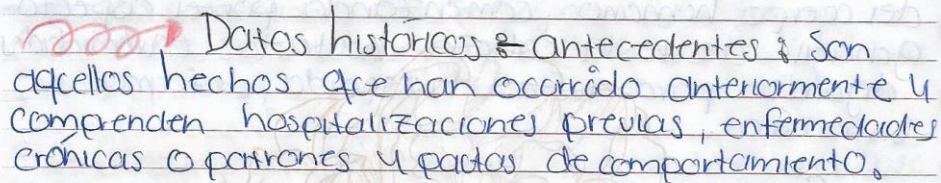 Datos históricos = antecedentes : Son
aquellos hechos que han ocurrido anteriormente y
comprenden hospitalizaciones previas, enfermedades
crónicas o patrones y pautas de comportamiento.